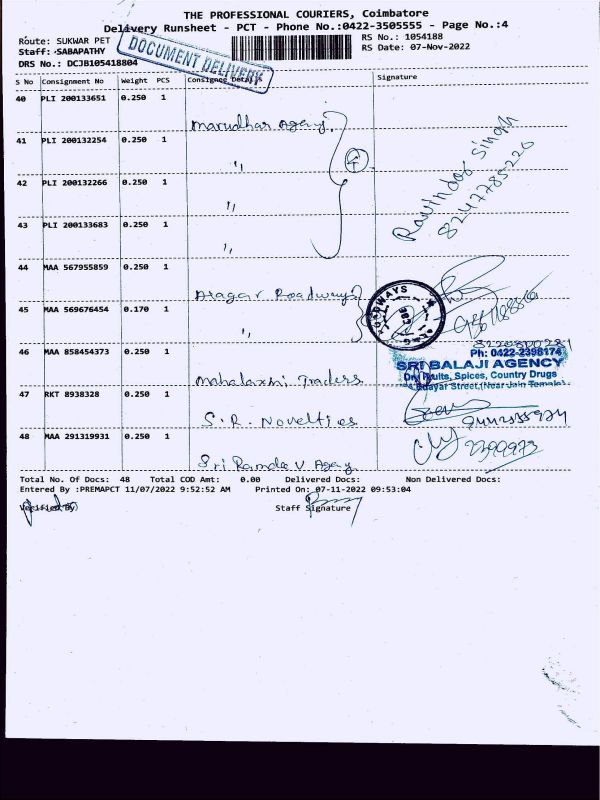 THE PROFESSIONAL COURIERS, Coimbatore
Delivery Runsheet - PCT - Phone No.:0422-3505555 - Page No.:4
Route: SUKWAR PET
RS No.: 1054188
Staff: SABAPATHY
RS Date: 07-Nov-2022
DRS No.: DCJB105418804
DOCUMENT DELIVERY
S No Consignment No Weight PCS Consignee Details Signature
40 PLI 200133651 0.250 1
Marudhar Agey.
41 PLI 200132254 0.250 1
"
42 PLI 200132266 0.250 1
"
43 PLI 200133683 0.250 1
"
Ravindar Singh
8247785220
44 MAA 567955859 0.250 1
Alagar Roadways
45 MAA 569676454 0.170 1
"
ROADWAYS
46 MAA 858454373 0.250 1
Mahalaxmi Traders
Ph: 0422-2396174
SRI BALAJI AGENCY
Dry Fruits, Spices, Country Drugs
Street, (Near Jain Temple)
47 RKT 8938328 0.250 1
S.R. Novelties
48 MAA 291319931 0.250 1
Sri Ramdev Agey
2390973
Total No. Of Docs: 48 Total COD Amt: 0.00 Delivered Docs: Non Delivered Docs:
Entered By :PREMAPCT 11/07/2022 9:52:52 AM Printed On: 07-11-2022 09:53:04
Verified By
Staff Signature